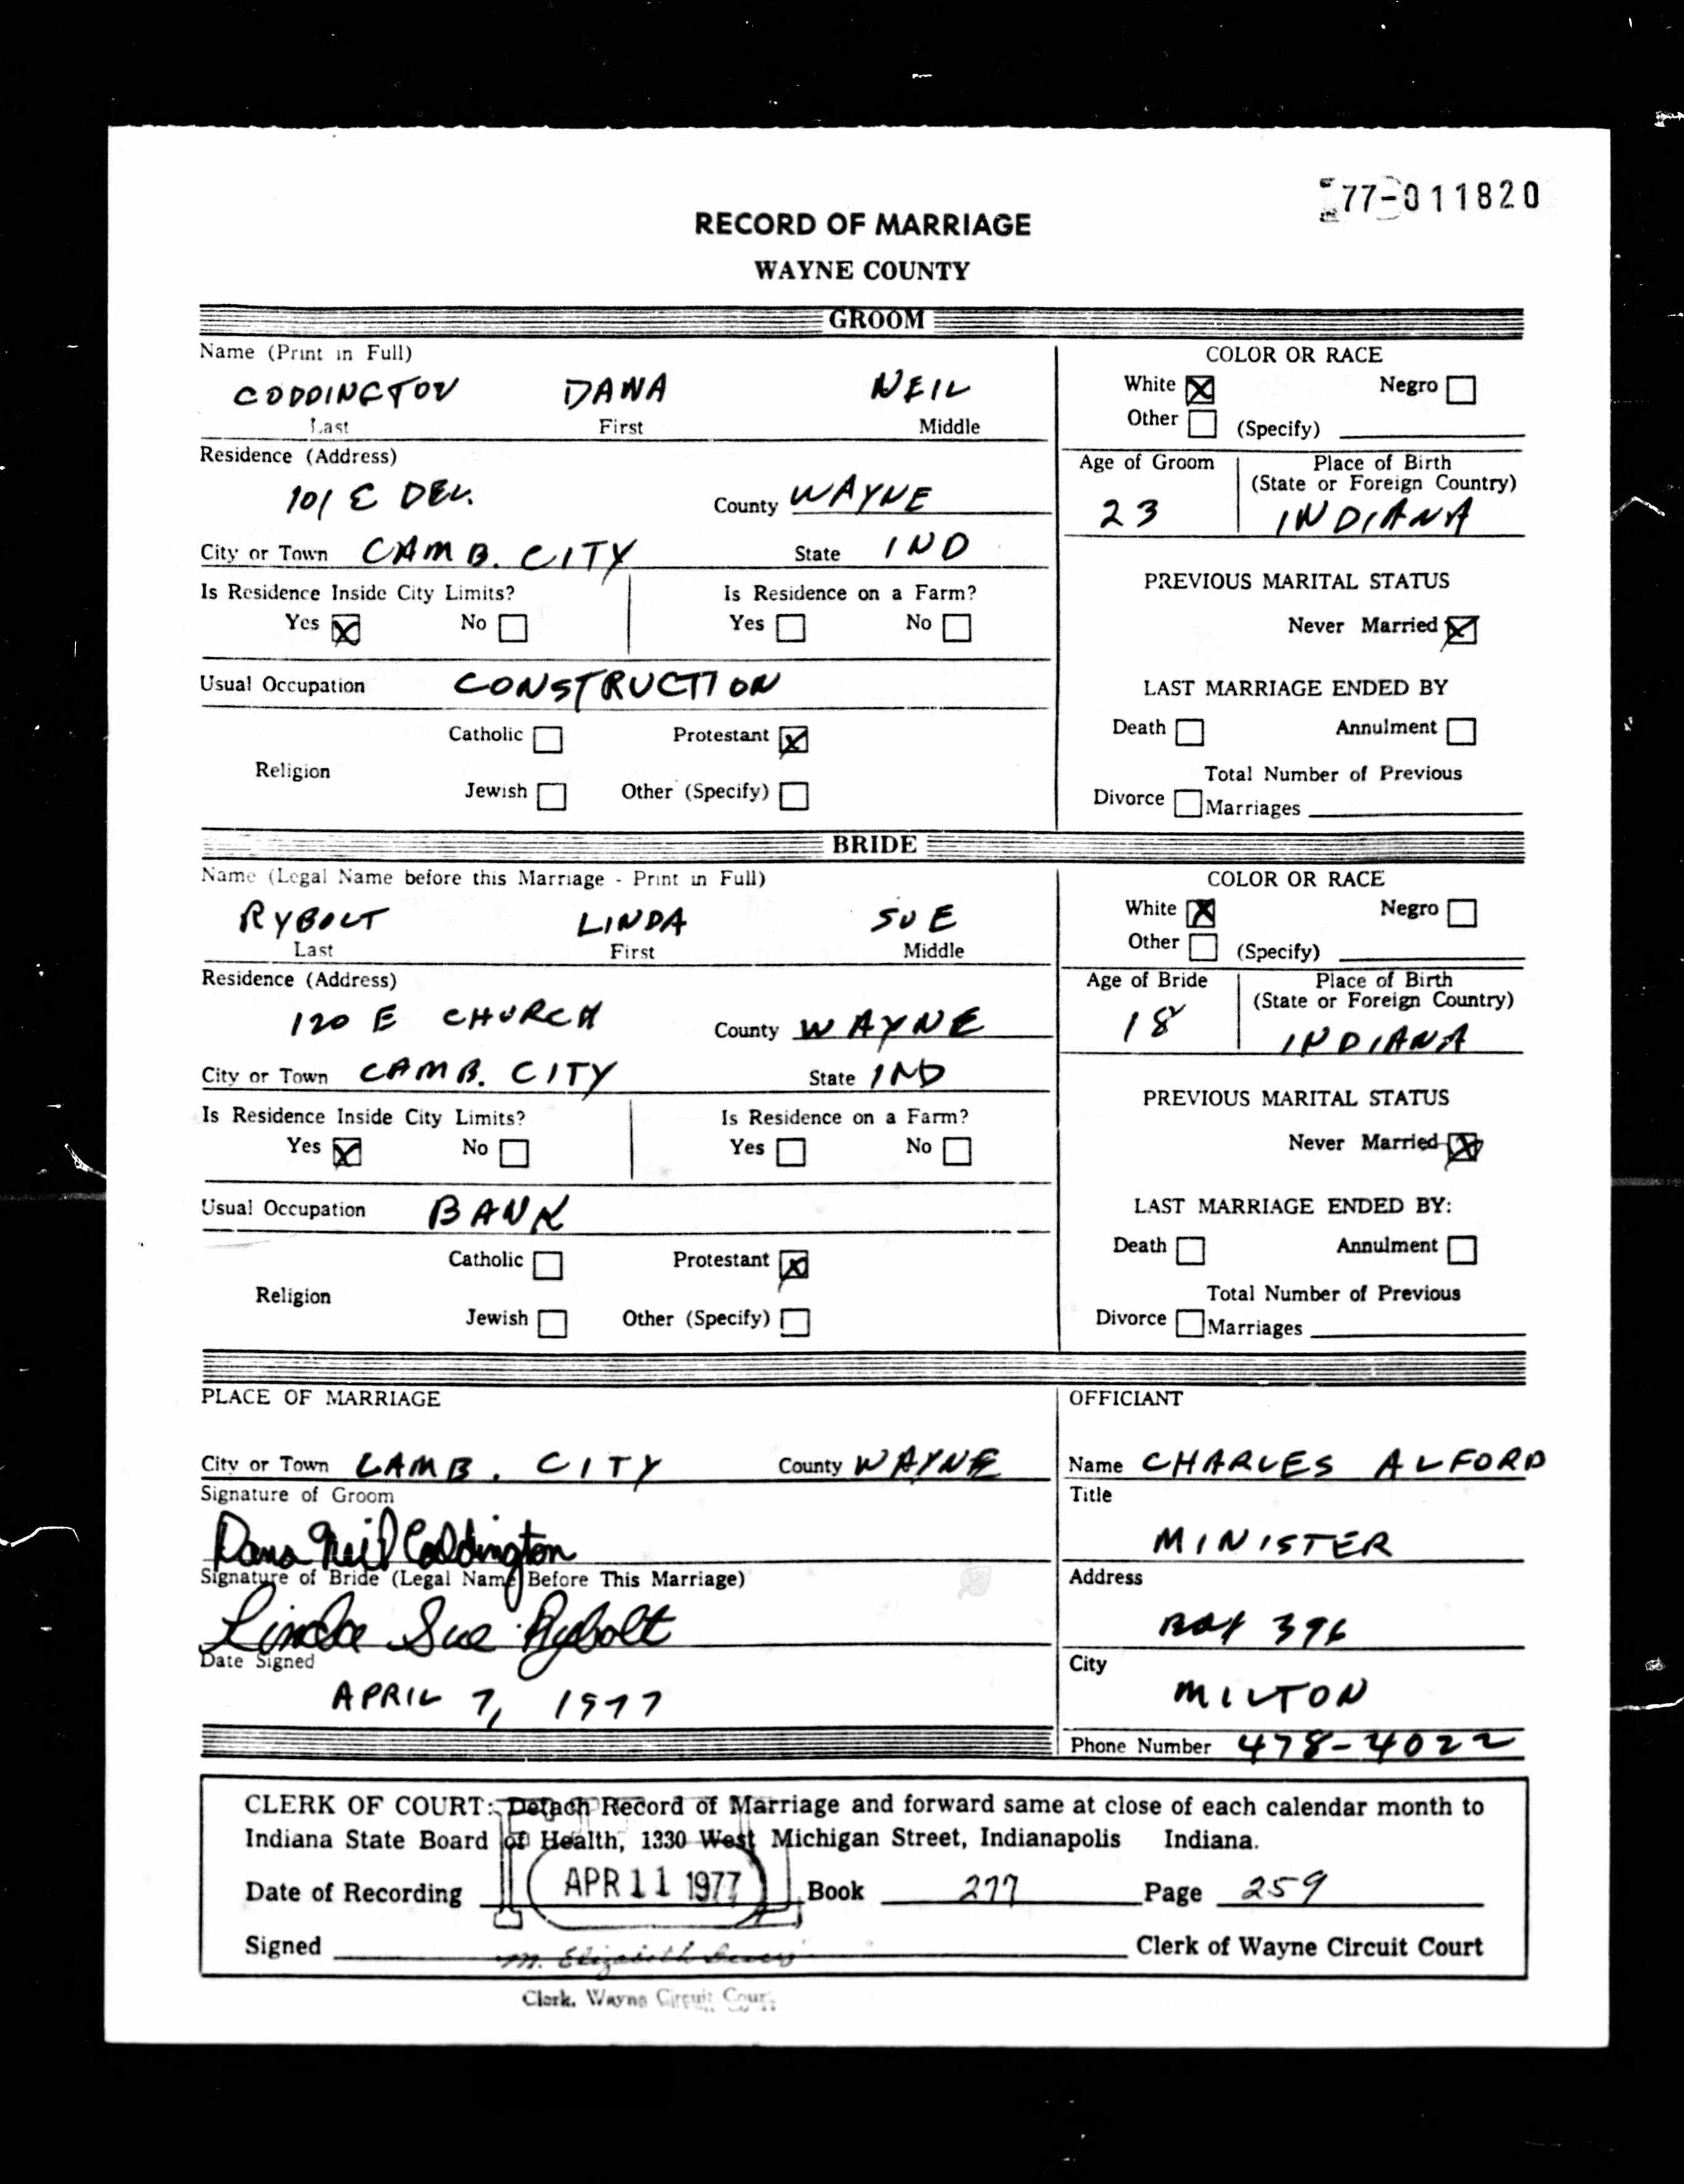 77-011820
RECORD OF MARRIAGE
WAYNE COUNTY
GROOM
Name (Print in Full)
CODDINGTON DANA NEIL
Last First Middle
COLOR OR RACE
White Negro
Other (Specify)
Residence (Address)
101 E DEL.
County WAYNE
Age of Groom
23
Place of Birth
(State or Foreign Country)
INDIANA
City or Town CAMB. CITY State IND
Is Residence Inside City Limits? Is Residence on a Farm?
Yes No Yes No
PREVIOUS MARITAL STATUS
Never Married
Usual Occupation CONSTRUCTION
LAST MARRIAGE ENDED BY
Death Annulment
Total Number of Previous
Divorce Marriages
Catholic Protestant
Religion
Jewish Other (Specify)
BRIDE
Name (Legal Name before this Marriage - Print in Full)
RYBOLT LINDA SUE
Last First Middle
COLOR OR RACE
White Negro
Other (Specify)
Residence (Address)
120 E CHURCH
County WAYNE
Age of Bride
18
Place of Birth
(State or Foreign Country)
INDIANA
City or Town CAMB. CITY State IND
Is Residence Inside City Limits? Is Residence on a Farm?
Yes No Yes No
PREVIOUS MARITAL STATUS
Never Married
Usual Occupation BANK
LAST MARRIAGE ENDED BY:
Death Annulment
Total Number of Previous
Divorce Marriages
Catholic Protestant
Religion
Jewish Other (Specify)
PLACE OF MARRIAGE
City or Town CAMB. CITY County WAYNE
Signature of Groom
Dana Neil Coddington
Signature of Bride (Legal Name Before This Marriage)
Linda Sue Rybolt
Date Signed
APRIL 7, 1977
OFFICIANT
Name CHARLES ALFORD
Title
MINISTER
Address
BOX 396
City
MILTON
Phone Number 478-4022
CLERK OF COURT: Detach Record of Marriage and forward same at close of each calendar month to
Indiana State Board of Health, 1330 West Michigan Street, Indianapolis Indiana.
Date of Recording APR 11 1977 Book 277 Page 259
Signed M. Elizabeth Clerk of Wayne Circuit Court
Clerk, Wayne Circuit Court